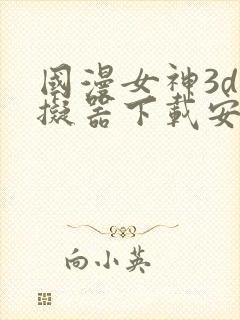 國漫女神3d
擬器下載安
向小英